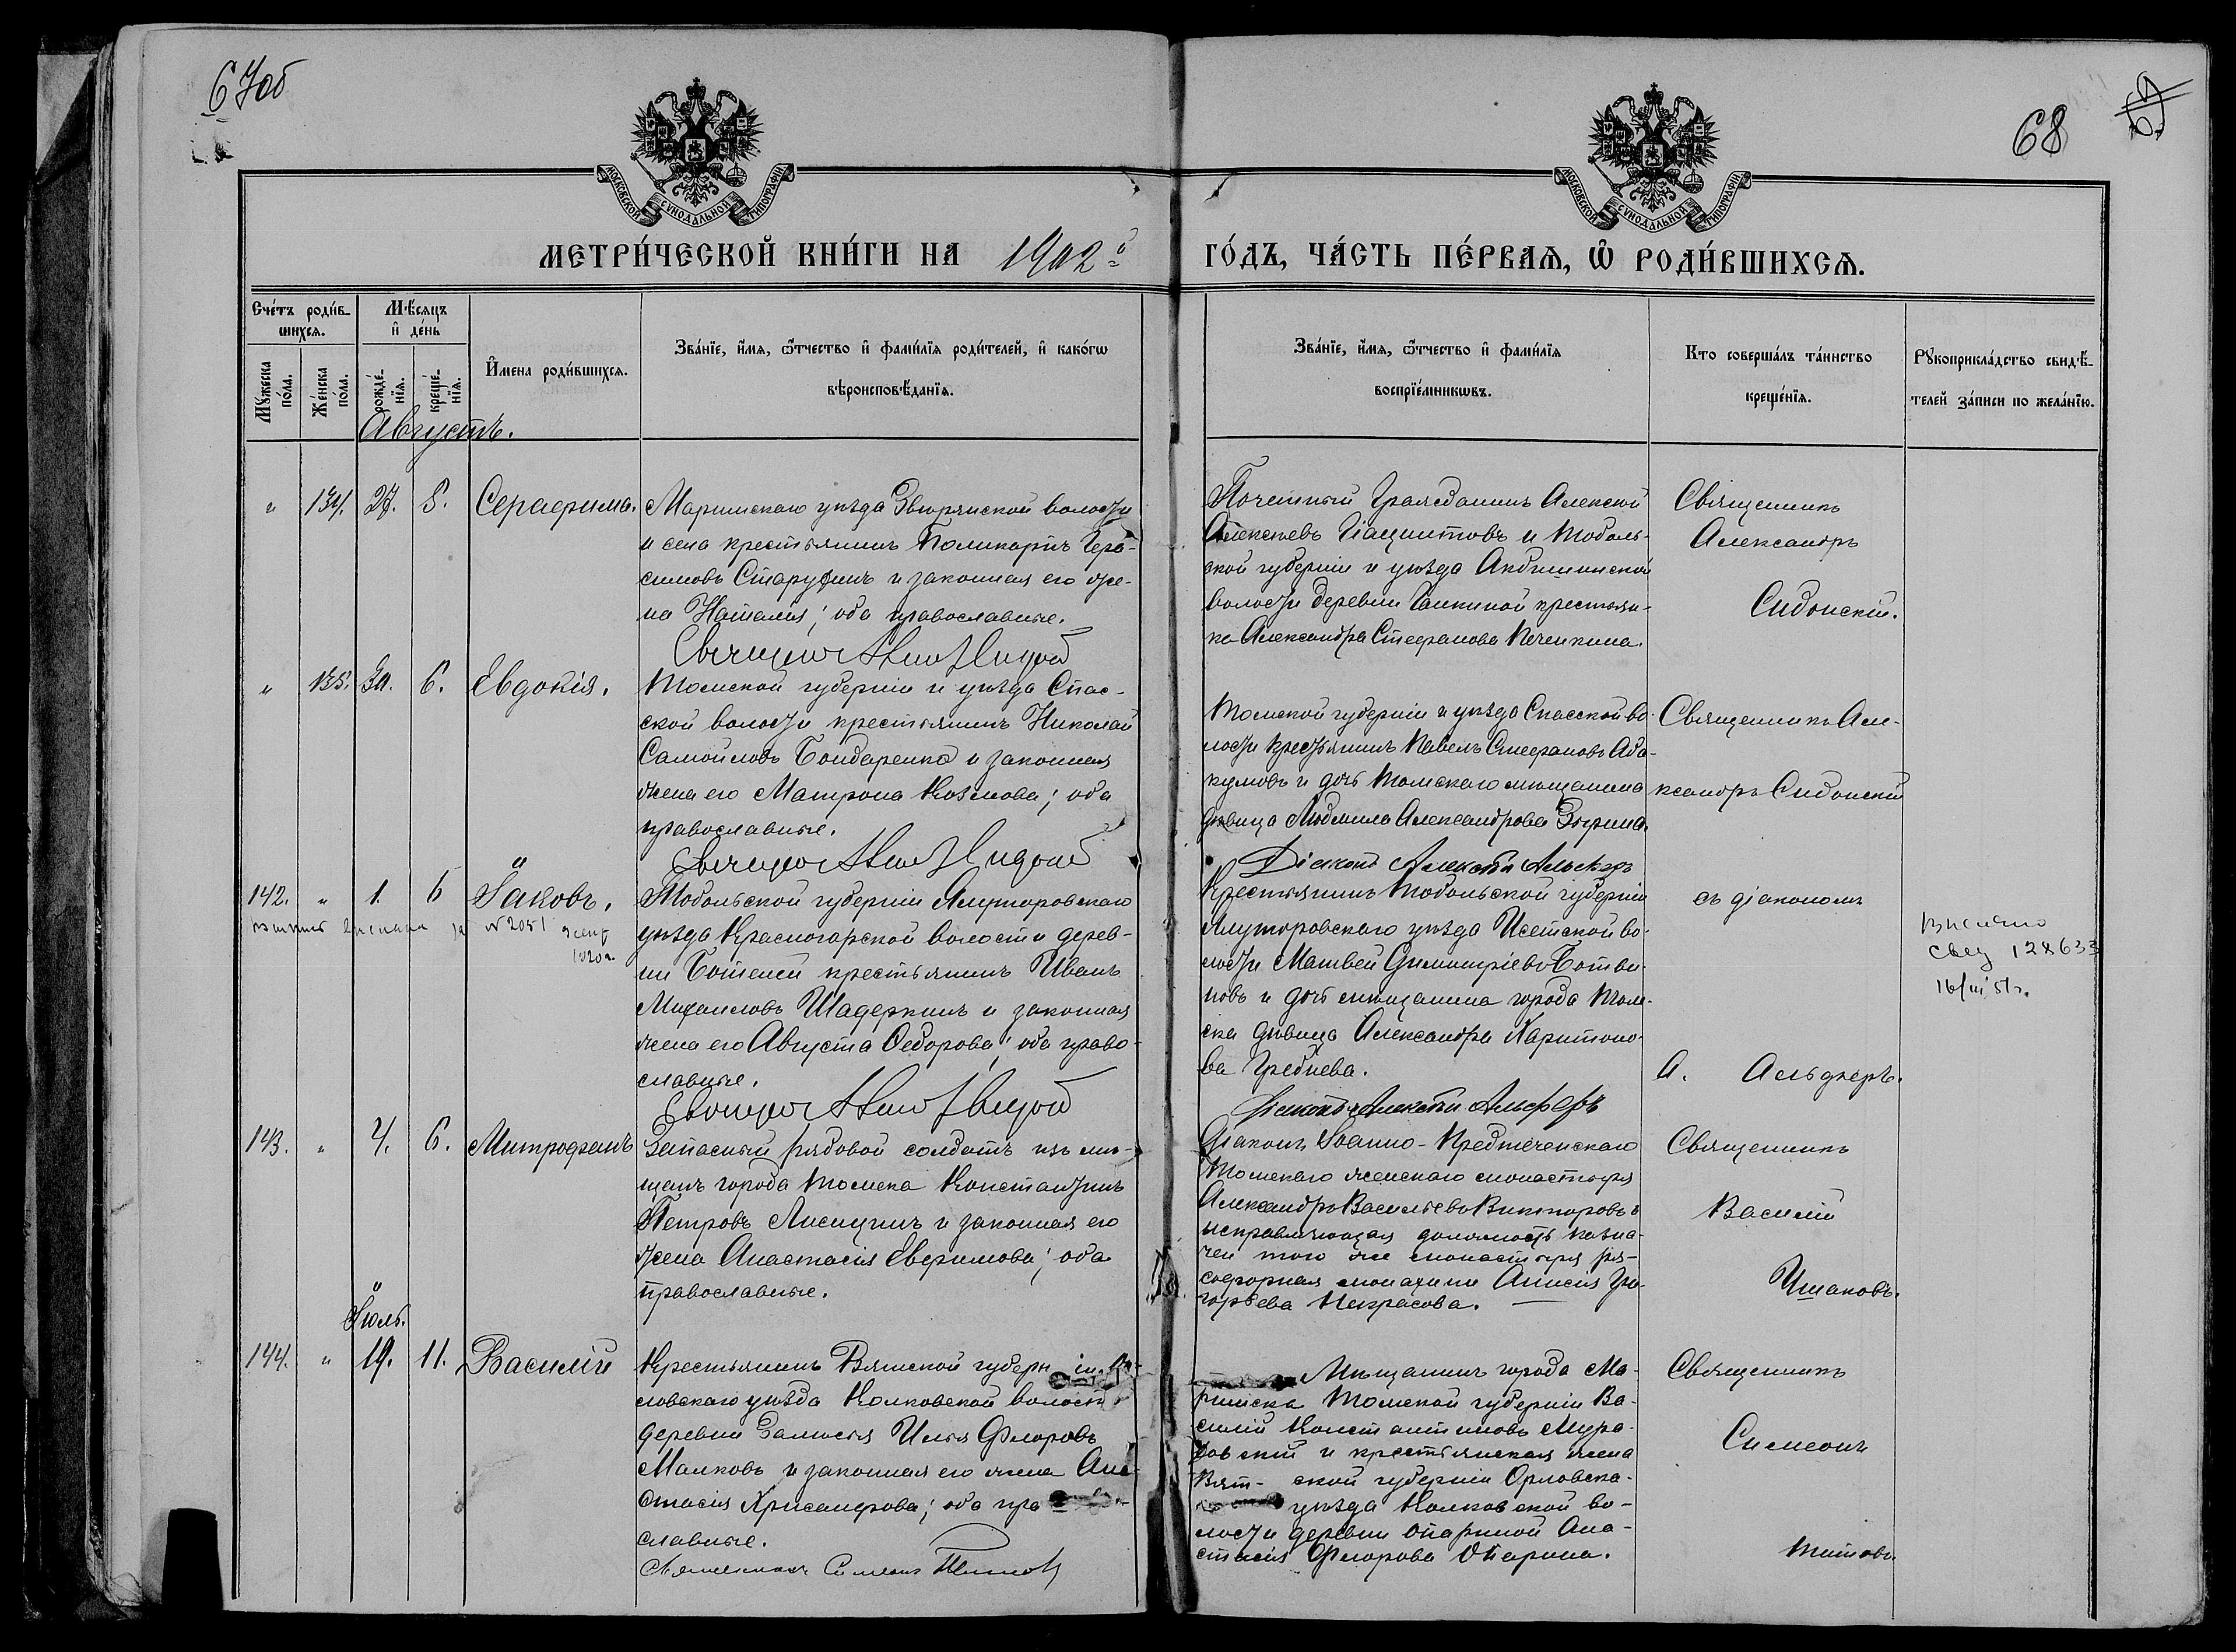 67об
68
МОСКОВСКОЙ СѴНОДАЛЬНОЙ ТИПОГРАФІИ
МОСКОВСКОЙ СѴНОДАЛЬНОЙ ТИПОГРАФІИ
МЕТРИ́ЧЕСКОЙ КНИ́ГИ НА 1902й
ГО́ДЪ, ЧА́СТЬ ПЕ́РВАѦ, Ѡ҆ РОДИ́ВШИХСѦ.
Сче́тъ роди́в-
шихсѧ.
Мꙋ́жеска по́ла.
Же́нска по́ла.
Мѣ́сѧцъ
и҆ де́нь
рожде́-нїѧ.
креще́-нїѧ.
И҆мена роди́вшихсѧ.
Зва́нїе, и҆́мѧ, ѻ҆́тчество и҆ фами́лїѧ роди́телей, и҆ како́гѡ
вѣроисповѣ́данїѧ.
Зва́нїе, и҆́мѧ, ѻ҆́тчество и҆ фами́лїѧ
воспрїе́мникѡвъ.
Кто соверша́лъ та́инство
креще́нїѧ.
Рꙋкоприкла́дство свидѣ́-
телей за́писи по жела́нїю.
Августъ.
" 134. 27. 5. Серафима.
Маріинскаго уѣзда Зырянской волости
и села крестьянинъ Поликарпъ Гера-
симовъ Старухинъ и законная его же-
на Наталія; оба православные.
Почетный Гражданинъ Алексѣй
Алексѣевъ Гіацинтовъ и Тоболь-
ской губерніи и уѣзда
волости деревни крестьян-
ка Александра Стефанова Печенкина.
Священникъ
Александръ
Сидонскій.
" 135. 30. 6. Евдокія.
Томской губерніи и уѣзда Спас-
ской волости крестьянинъ Николай
Самойловъ Бондаренко и законная
жена его Матрона Козмова; оба
православные.
Томской губерніи и уѣзда Спасской во-
лости крестьянинъ Павелъ Стефановъ Аба-
кумовъ и дочь Томскаго мѣщанина
дѣвица Людмила Александрова Зырина.
Священникъ Але-
ксандръ Сидонскій
142. " 1. 6 Іаковъ.
№ 2051
1920 г.
Тобольской губерніи Ялуторовскаго
уѣзда Красногорской волости дерев-
ни Ботеней крестьянинъ Иванъ
Михаиловъ Шадеркинъ и законная
жена его Августа Ѳедорова; оба право-
славные.
Діаконъ Алексѣй Альферъ
Крестьянинъ Тобольской губерніи
Ялуторовскаго уѣзда Исетской во-
лости Матвей Димитріевъ Ботви-
новъ и дочь мѣщанина города Том-
ска дѣвица Александра Харитоно-
ва Гребнева.
съ діакономъ
А. Альферъ.
128633
16/III 51 г.
143. " 4. 6. Митрофанъ
Запасный рядовой солдатъ изъ мѣ-
щанъ города Томска Константинъ
Петровъ Лисицинъ и законная его
жена Анастасія Евфимова; оба
православные.
Діаконъ Алексѣй Альферъ
Діаконъ Іоанно-Предтеченскаго
Томскаго женскаго монастыря
Александръ Васильевъ Викторовъ и
исправляющая должность казна-
чеи того же монастыря ря-
софорная монахиня Анисія Гри-
горьева Некрасова.
Священникъ
Василій
Юль.
144. " 19. 11. Василій
Крестьянинъ Вятской губерніи Ор-
ловскаго уѣзда Колковской волости
деревни Илья Флоровъ
Малковъ и законная его жена Ана-
стасія Хрисанфова; оба пра
славные.
Священникъ Симеонъ Титовъ
Мѣщанинъ города Ма-
ріинска Томской губерніи Ва-
силій Константиновъ Мура-
товскій и крестьянская жена
Вят- ской губерніи Орловска-
уѣзда Колковской во-
лости деревни Опариной Ана-
стасія Флорова Опарина.
Священникъ
Симеонъ
Титовъ.